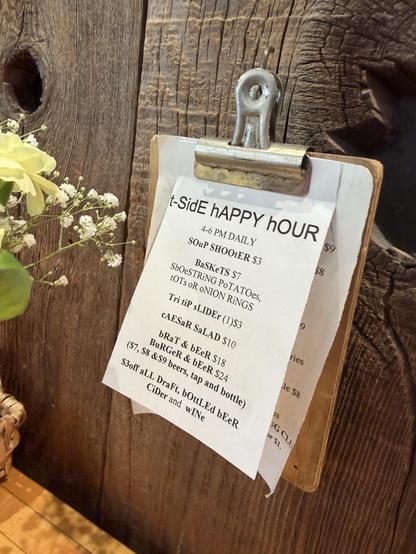 t-SidE hAPPY hOUR
4-6 PM DAILY
SOuP SHOOtER $3
BaSKeTS $7
ShOESTRiNG PoTATOEs,
tOTS oR oNION RiNGS
Tri tiP sLIDEr (1)$3
cAESaR SaLAD $10
bRaT & bEeR $18
BuRGeR & bEeR $24
($7, $8 &$9 beers, tap and bottle)
$3off aLL DraFt, bOttLEd bEeR
CiDer and wINe
$9
$8
9
ries
le $8
es
OG CLU
or $1.